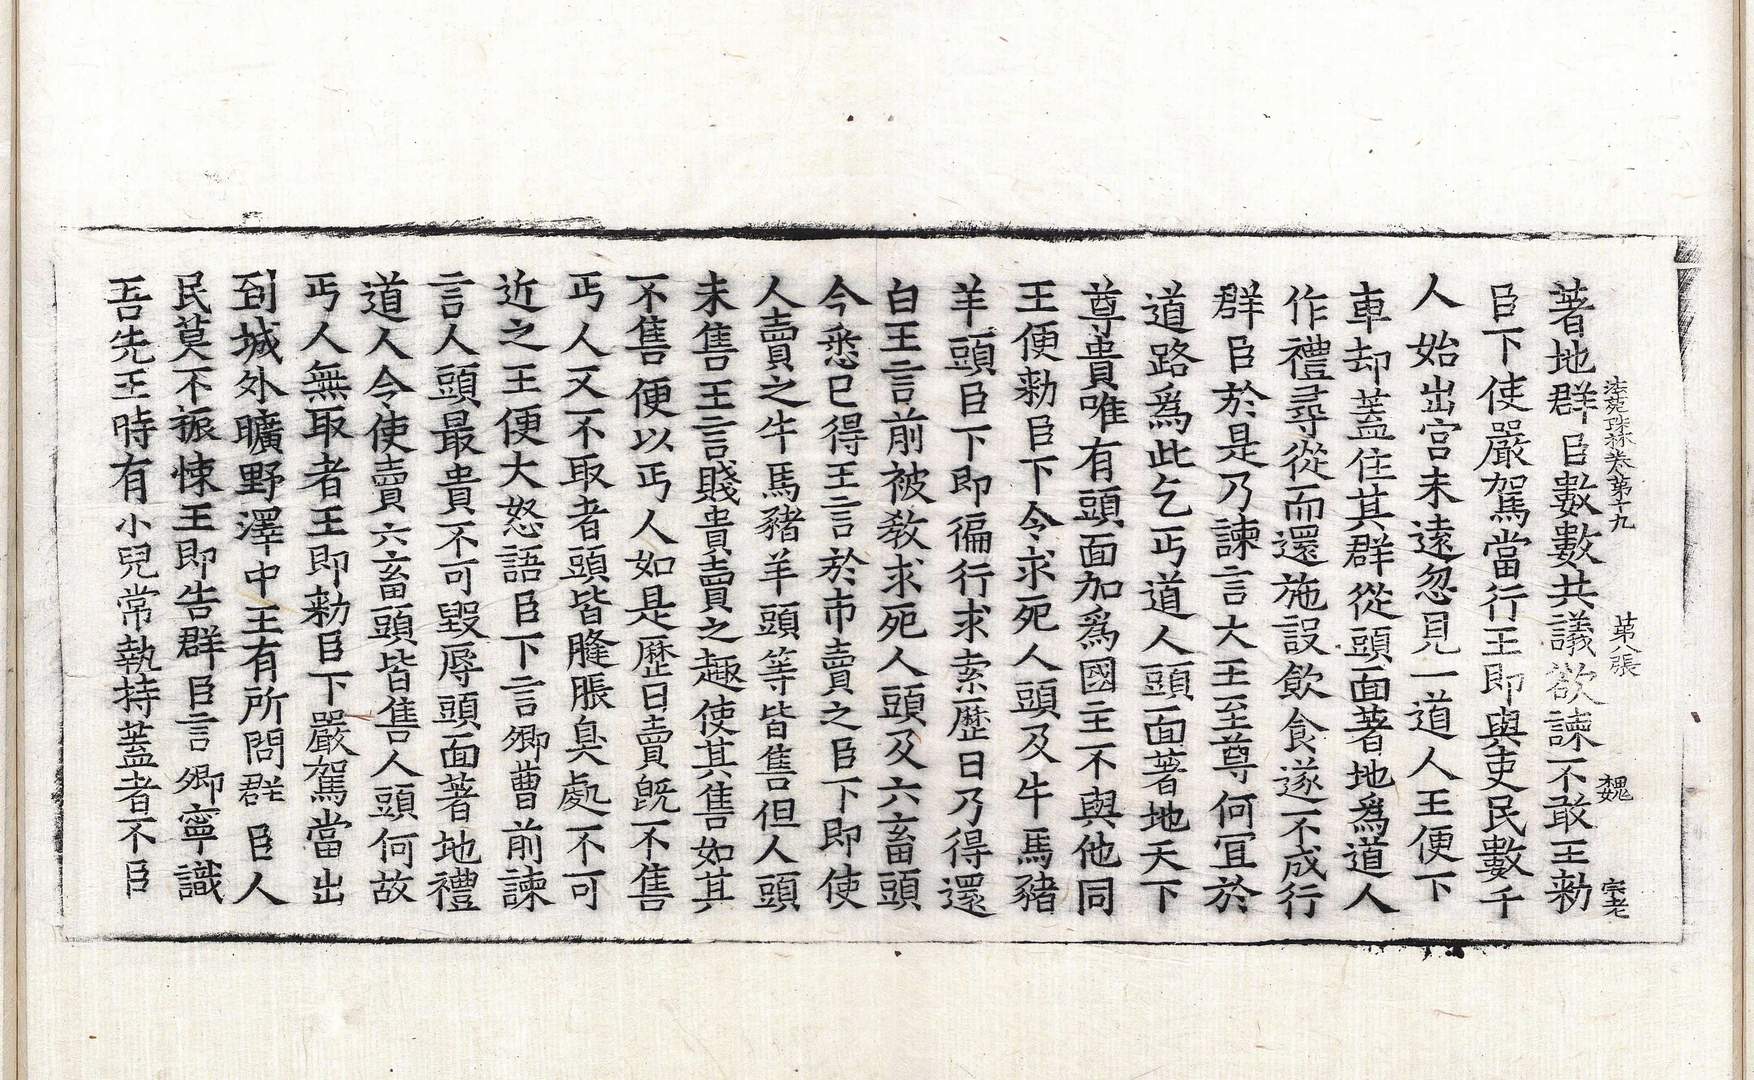 法苑珠林卷第十九 第八張 魏 宗老
著地群臣數數共議欲諫不敢王勑
臣下使嚴駕當行王即與吏民數千
人始出宮未遠忽見一道人王便下
車却蓋住其群從頭面著地爲道人
作禮尋從而還施設飲食遂不成行
群臣於是乃諫言大王至尊何冝於
道路爲此乞丐道人頭面著地天下
尊貴唯有頭面加爲國主不與他同
王便勑臣下令求死人頭及牛馬豬
羊頭臣下即徧行求索歷日乃得還
白王言前被敎求死人頭及六畜頭
今悉已得王言於市賣之臣下即使
人賣之牛馬豬羊頭等皆售但人頭
未售王言賤貴賣之趣使其售如其
不售便以丐人如是歷日賣旣不售
丐人又不取者頭皆膖脹臭處不可
近之王便大怒語臣下言卿曹前諫
言人頭最貴不可毀辱頭面著地禮
道人今使賣六畜頭皆售人頭何故
丐人無取者王即勑臣下嚴駕當出
到城外曠野澤中王有所問群臣人
民莫不振悚王即告群臣言卿寧識
吾先王時有小兒常執持蓋者不臣